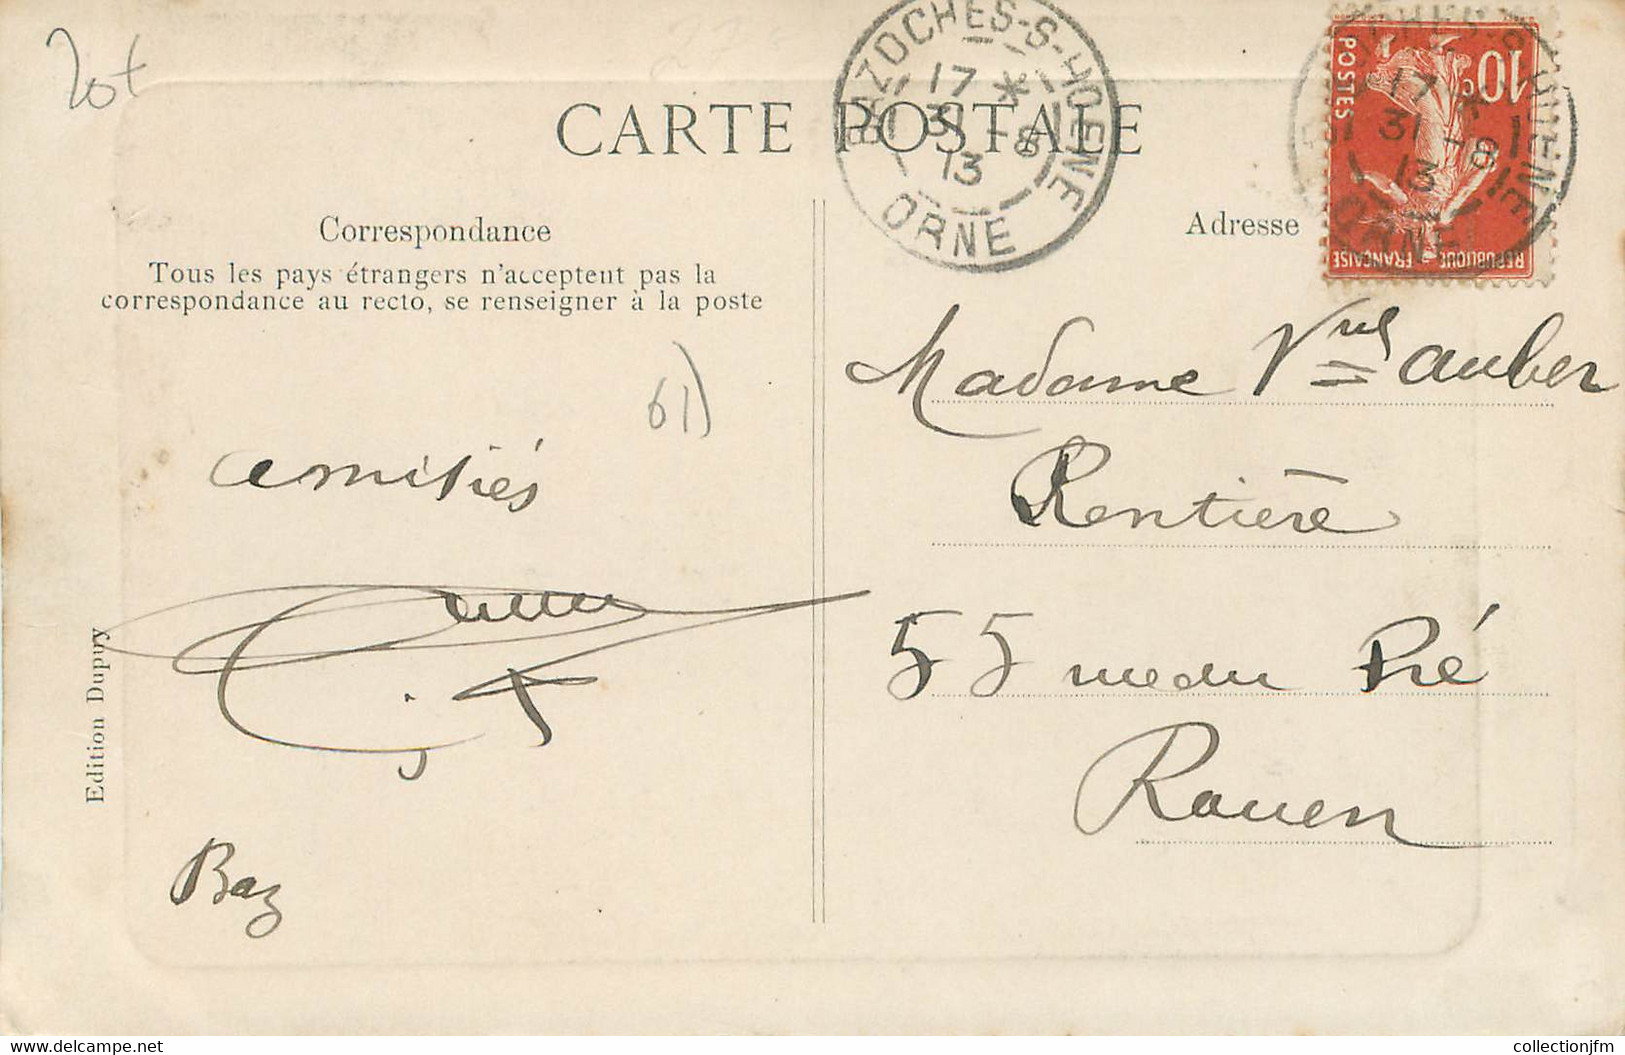 20+
CARTE POSTALE
BAZOCHES-S-HOENE
17 *
31 -8
13
ORNE
10c
POSTES
REPUBLIQUE FRANÇAISE
17 *
31 -8
13
ORNE
Correspondance
Tous les pays étrangers n'acceptent pas la
correspondance au recto, se renseigner à la poste
Adresse
61)
amitiés
Baz
Edition Dupuy
Madame Vve auber
Rentière
55 rue du Pré
Rouen
delcampe.net
collectionjfm